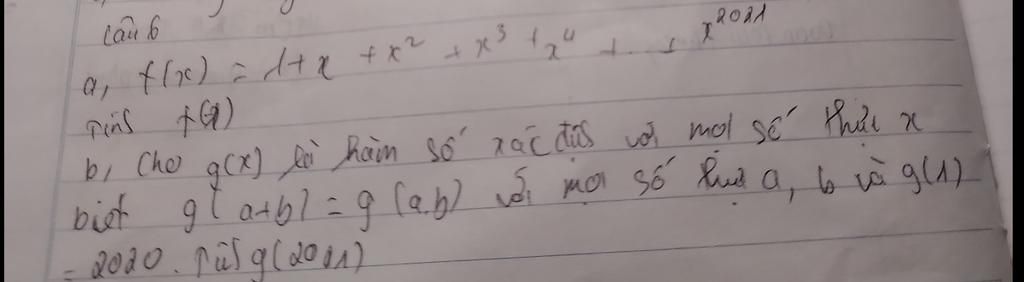 Câu 6
a, f(x) = 1+x +x² +x³ +x⁴ + ... + x²⁰²¹
Tính f(1)
b, Cho g(x) là hàm số xác định với mọi số thực x
biết g(a+b) = g(a.b) với mọi số thực a, b và g(1)
= 2020. Tính g(2021)